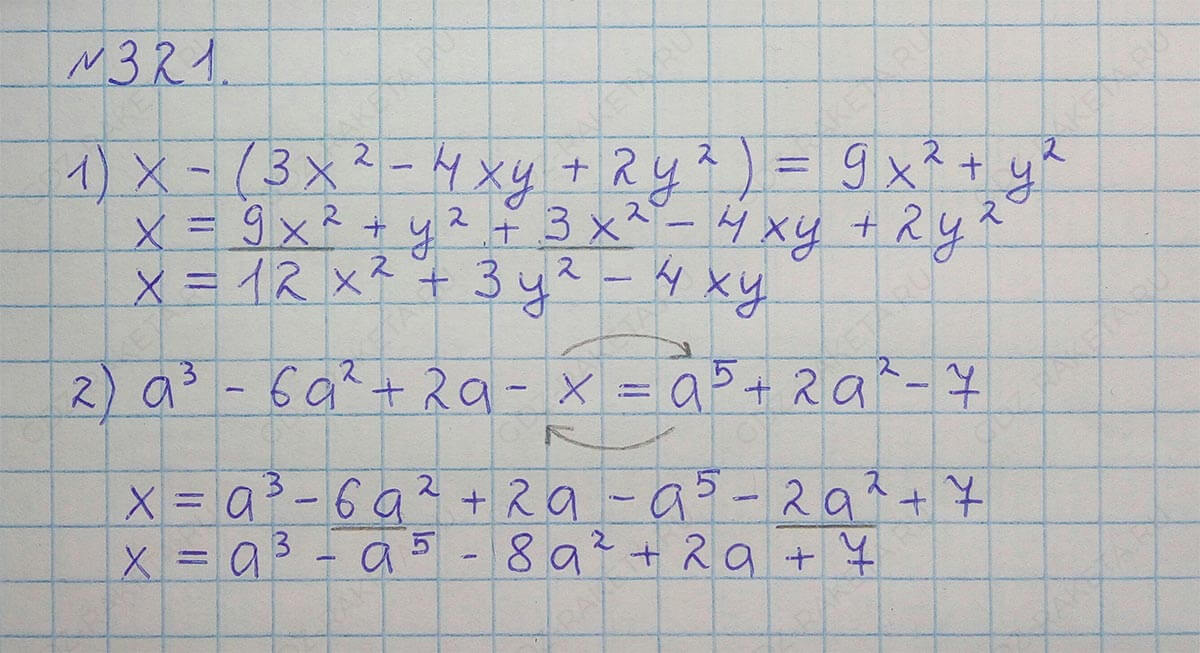 №321.
1) x - (3x² - 4xy + 2y²) = 9x² + y²
x = 9x² + y² + 3x² - 4xy + 2y²
x = 12x² + 3y² - 4xy
2) a³ - 6a² + 2a - x = a⁵ + 2a² - 7
x = a³ - 6a² + 2a - a⁵ - 2a² + 7
x = a³ - a⁵ - 8a² + 2a + 7